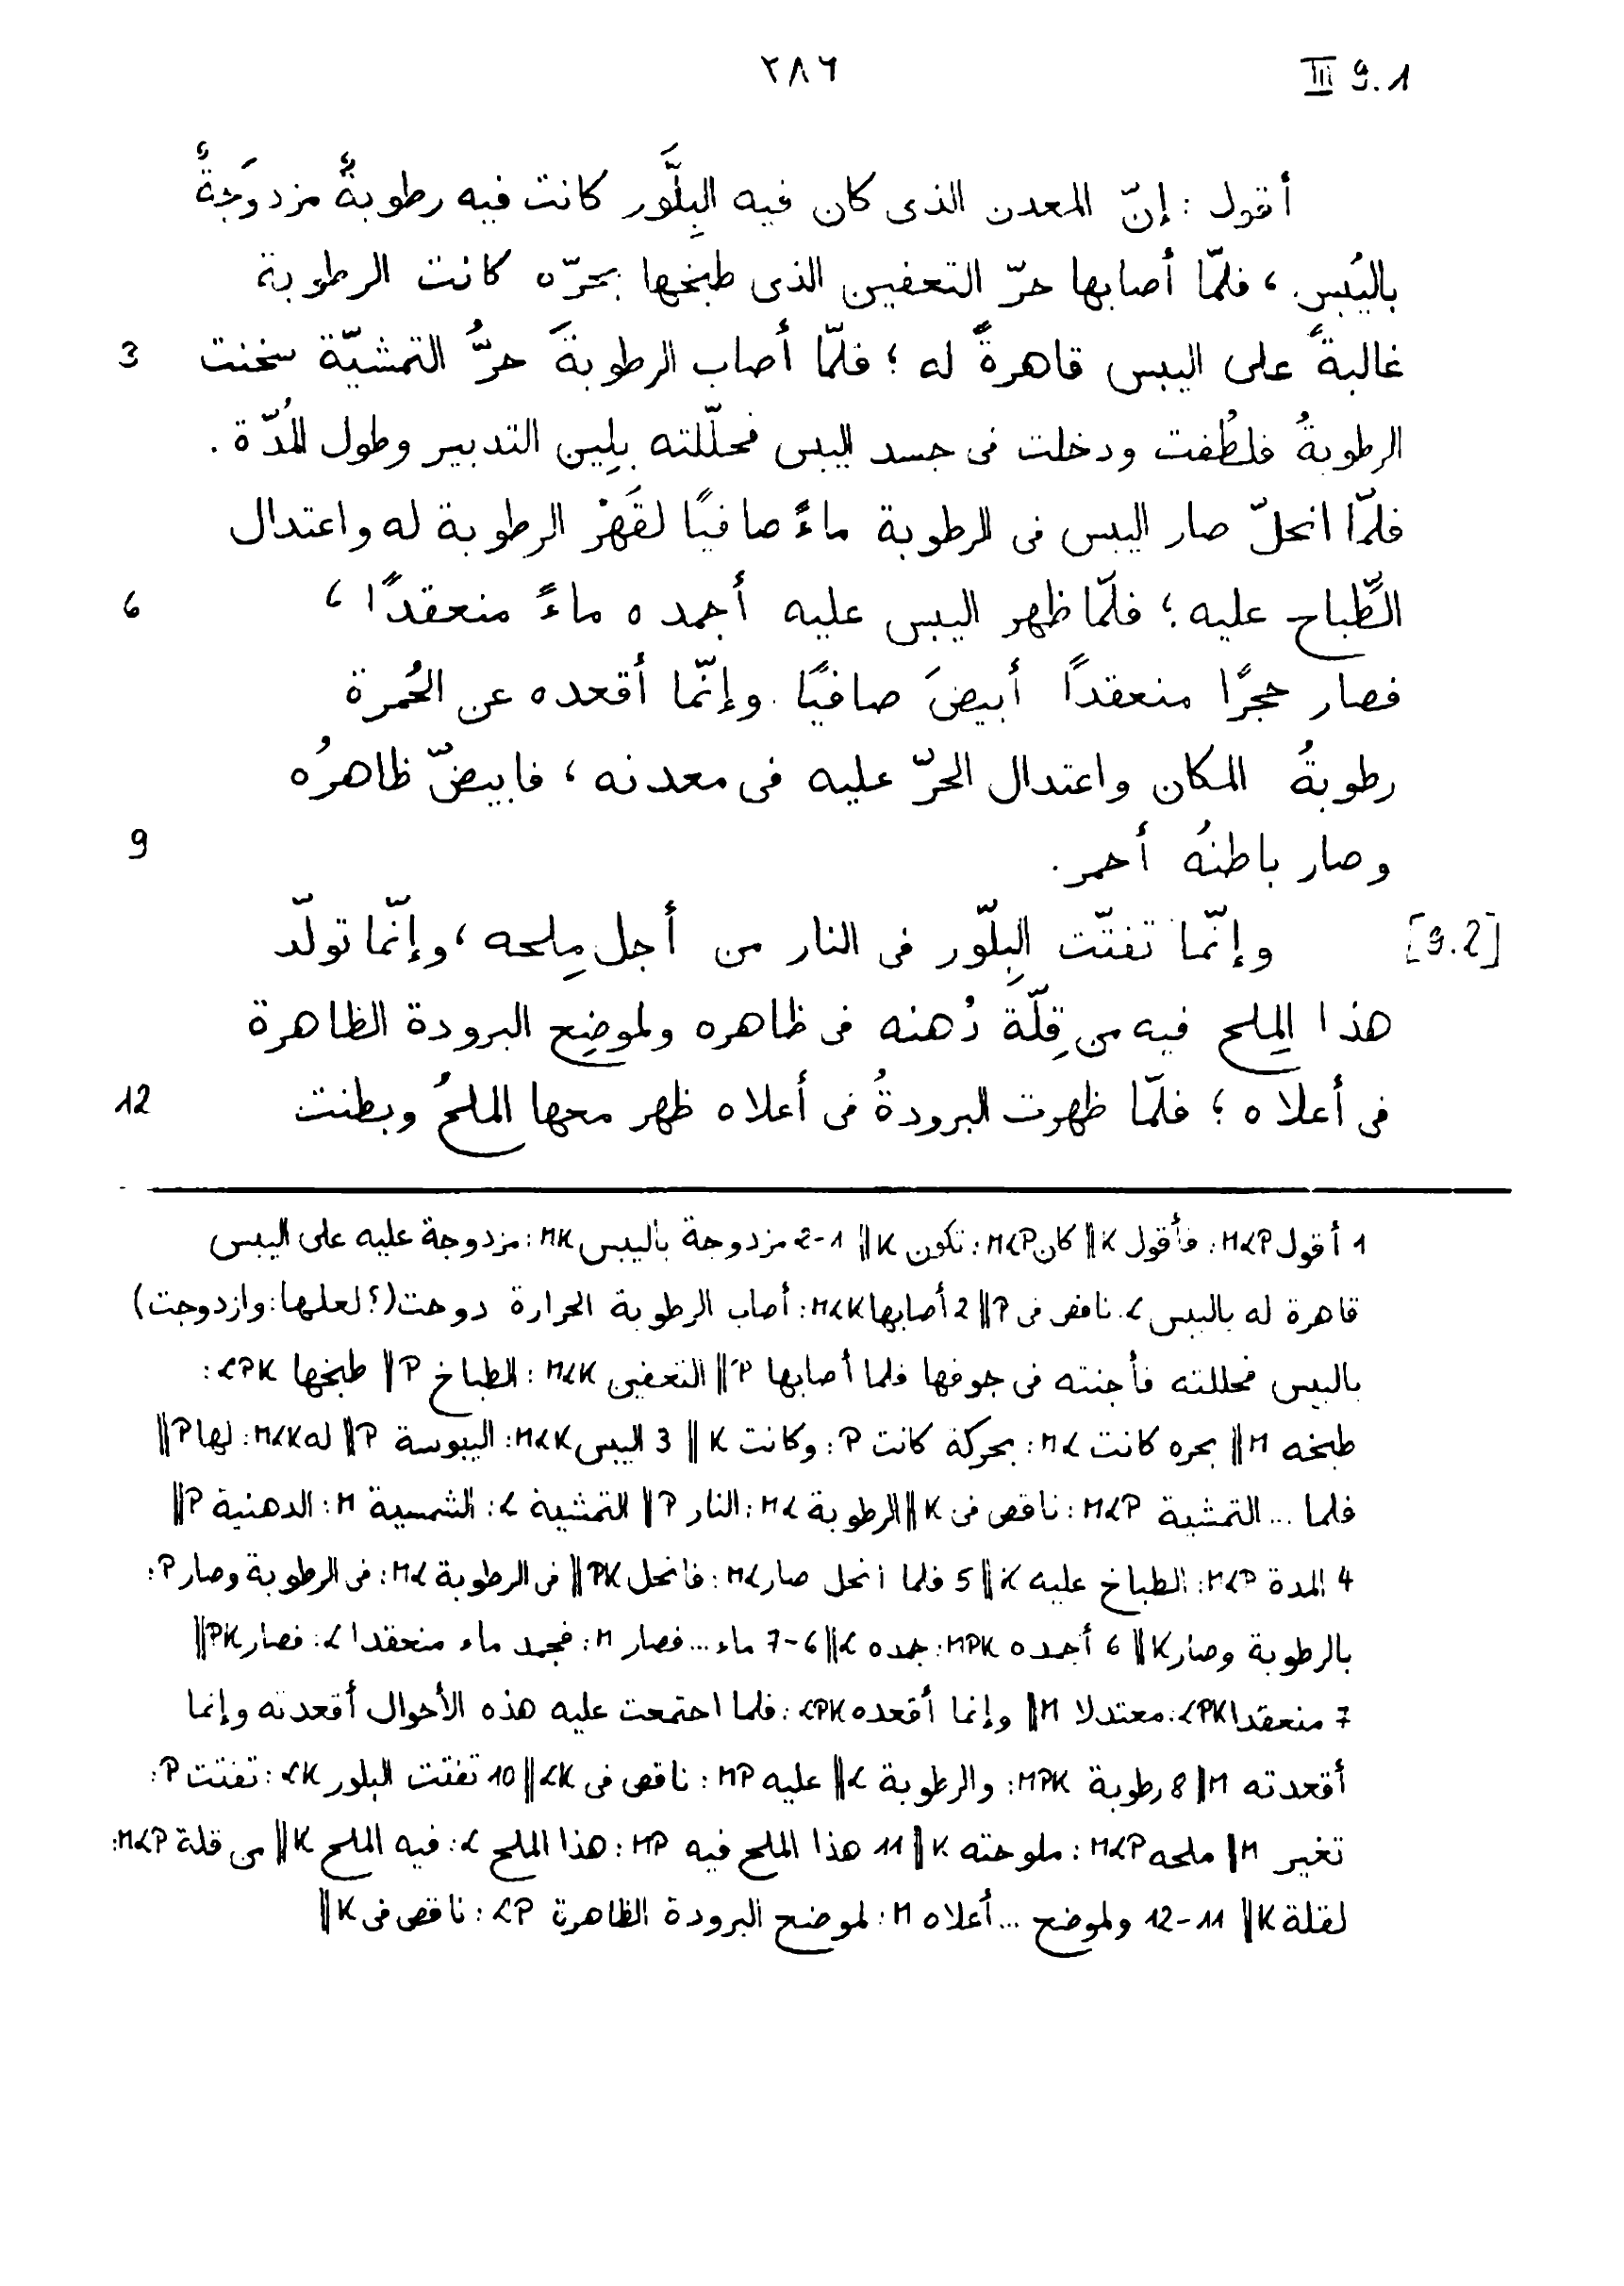 ٢٨٦ III 9.1
أقول : إنّ المعدن الذى كان فيه البِلَّور كانت فيه رطوبةٌ مزدوَجةٌ
باليُبس ، فلمّا أصابها حرّ التعفين الذى طبخها بحرّه كانت الرطوبة
غالبةً على اليبس قاهرةً له ؛ فلمّا أصاب الرطوبةَ حرُّ التمشيّة سخنت 3
الرطوبةُ فلطُفت ودخلت فى جسد اليبس فحلّلته بلِين التدبير وطول المُدّة .
فلمّا انحلّ صار اليبس فى الرطوبة ماءً صافيًا لقَهْر الرطوبة له واعتدال
الطِّباخ عليه ؛ فلمّا ظهر اليبس عليه أجمده ماءً منعقدًا ، 6
فصار حجرًا منعقداً أبيضَ صافيًا . وإنّما أقعده عن الحُمرة
رطوبةُ المكان واعتدال الحرّ عليه فى معدنه ، فابيضّ ظاهرُه
وصار باطنُه أحمر . 9
[9.2] وإنّما تفتّت البِلّور فى النار من أجل مِلحه ، وإنّما تولّد
هذا المِلح فيه من قِلّة دُهنه فى ظاهره ولموضِع البرودة الظاهرة
فى أعلاه ؛ فلمّا ظهرت البرودةُ فى أعلاه ظهر معها الملحُ وبطنت 12
1 أقول MLP: فأقول K ‖ كان MLP: تكون K ‖ 1-2 مزدوجة باليبس MK: مزدوجة عليه على اليبس
قاهرة له باليبس L. ناقص فى P ‖ 2 أصابها MLK: أصاب الرطوبة الحرارة دوحت (؟ لعلها: وازدوجت)
باليبس فحللته فأجنته فى جوفها فلما أصابها P ‖ التعفين MLK: الطباخ P ‖ طبخها LPK:
طبخه M ‖ بحره كانت ML: بحركة كانت P: وكانت K ‖ 3 اليبس MLK: اليبوسة P ‖ له MLK: لها P ‖
فلما ... التمشية MLP: ناقص فى K ‖ الرطوبة ML: النار P ‖ التمشية L: الشمسية M: الدهنية P ‖
4 المدة MLP: الطباخ عليه K ‖ 5 فلما انحل صار ML: فانحل PK ‖ فى الرطوبة ML: فى الرطوبة وصار P:
بالرطوبة وصار K ‖ 6 أجمده MPK: جمده L ‖ 6-7 ماء ... فصار M: فجمد ماء منعقدا L: فصار PK ‖
7 منعقدا LPK: معتدلا M ‖ وإنما أقعده LPK: فلما احتمعت عليه هذه الأحوال أقعدته وإنما
أقعدته M ‖ 8 رطوبة MPK: والرطوبة L ‖ عليه MP: ناقص فى LK ‖ 10 تفتت البلور LK: تفتت P:
تغير M ‖ ملحه MLP: ملوحته K ‖ 11 هذا الملح فيه MP: هذا الملح L: فيه الملح K ‖ من قلة MLP:
لقلة K ‖ 11-12 ولموضع ... أعلاه M: لموضع البرودة الظاهرة LP: ناقص فى K ‖